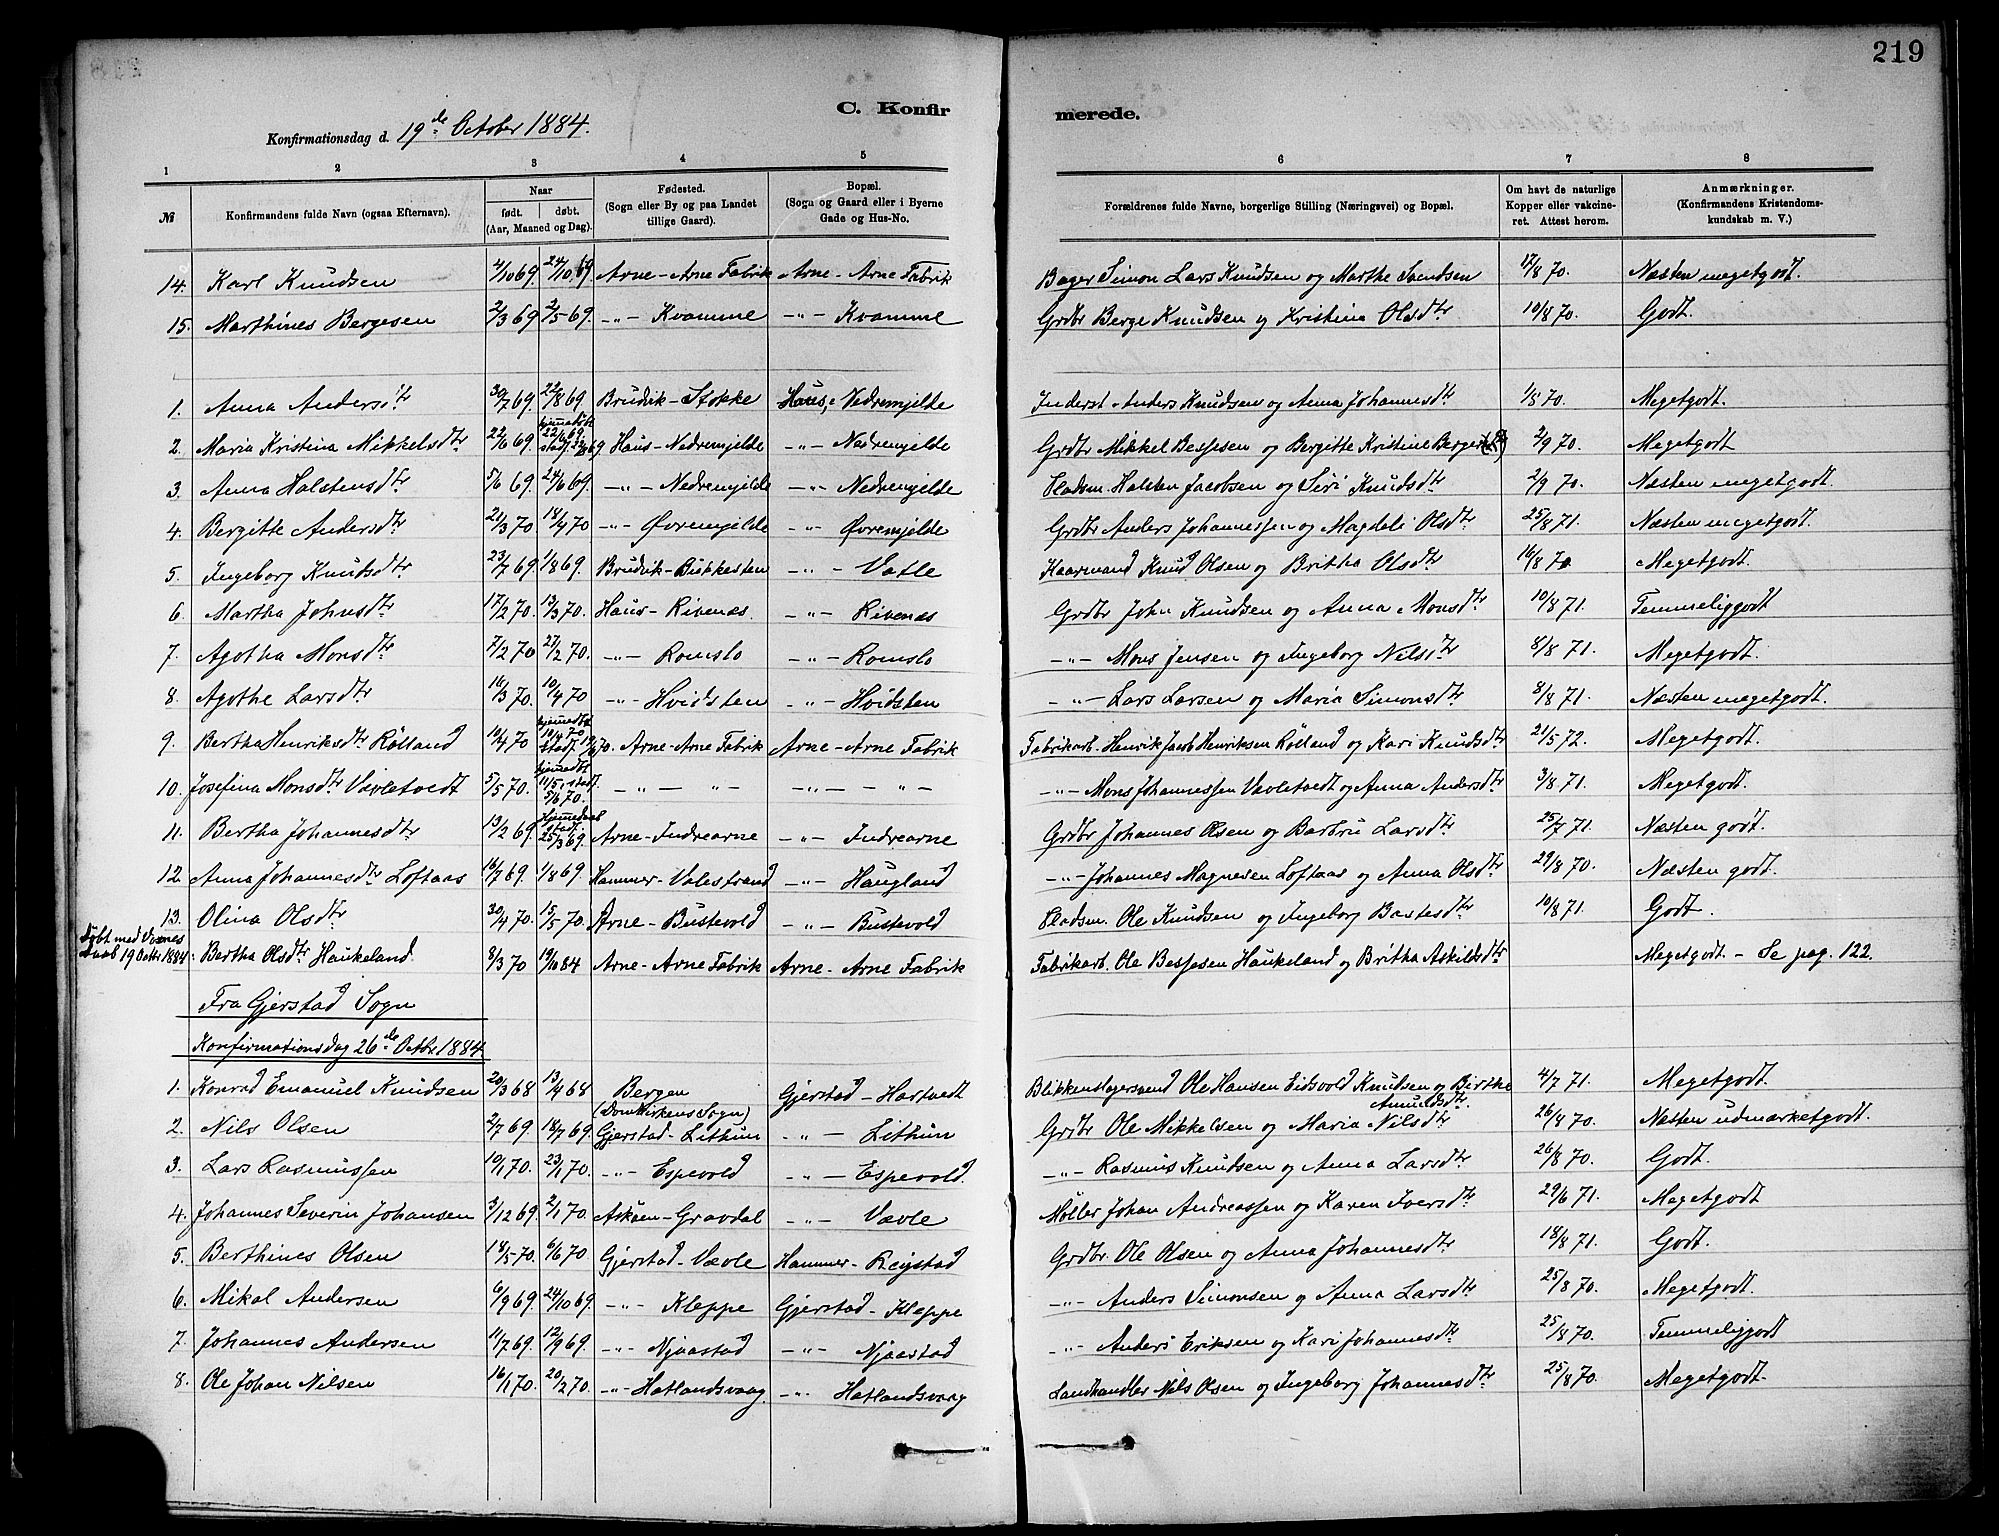 219
C. Konfirmerede.
Konfirmationsdag d. 19de October 1884.
1 2 3 4 5 6 7 8
№ Konfirmandens fulde Navn (ogsaa Efternavn). Naar født. døbt. (Aar, Maaned og Dag). Fødested. (Sogn eller By og paa Landet tillige Gaard). Bopæl. (Sogn og Gaard eller i Byerne Gade og Hus-No. Forældrenes fulde Navne, borgerlige Stilling (Næringsvei) og Bopæl. Om havt de naturlige Kopper eller vakcineret. Attest herom. Anmærkninger. (Konfirmandens Kristendomskundskab m. V.)
14. Karl Knudsen 4/10 69. 24/10 69 Arne-Arne Fabrik Arne-Arne Fabrik Bager Simon Lars Knudsen og Marthe Svendsen 17/8 70. Næsten megetgodt.
15. Marthines Bergesen 2/3 69 2/5 69. -"- Kvamme -"- Kvamme Grdbr Berge Knudsen og Kristina Olsdtr 10/8 70. Godt.
1. Anna Andersdtr 30/7 69. 22/8 69. Brudvik-Stokke Haus, Nedremjelde Inderst Anders Knudsen og Anna Johannesdtr 1/5 70. Megetgodt.
2. Maria Kristina Mikkelsdtr 22/6 69. hjemmedøbt 22/6 69 stadf. Haus-Nedremjelde -"- Nedremjelde Grdbr Mikkel Besjesen og Bergitte Kristine 2/9 70. Megetgodt
3. Anna Halstensdtr 5/6 69. 24/6 69. -"- Nedremjelde -"- Nedremjelde Pladsm. Halsten Jacobsen og Siri Knudsdtr 2/9 70. Næsten megetgodt.
4. Bergitte Andersdtr 21/3 70. 18/4 70 -"- Øvremjelde -"- Øvremjelde Grdbr Anders Johannessen og Magdeli Olsdtr 25/8 71. Næsten megetgodt.
5. Ingeborg Knudsdtr 23/7 69. 1/8 69. Brudvik-Bukkesten -"- Vatle Kaarmand Knud Olsen og Britha Olsdtr 16/8 70 Megetgodt.
6. Martha Johnsdtr 17/2 70. 13/3 70. Haus-Rivenæs. -"- Rivenæs Grdbr John Knudsen og Anna Monsdtr 10/8 71. Temmeliggodt
7. Agotha Monsdtr 7/2 70 27/2 70. -"- Romslo -"- Romslo -"- Mons Jensen og Ingeborg Nilsdtr 8/8 71. Megetgodt.
8. Agothe Larsdtr 16/3 70. 10/4 70 -"- Hvidsten -"- Hvidsten -"- Lars Larsen og Maria Simonsdtr 8/8 71. Næsten megetgodt.
9. Bertha Henriksdtr Rølland 10/4 70 hjemmedøbt 10/4 70 stadf. Arne-Arne Fabrik Arne-Arne Fabrik Fabrikarb. Henrik Jacob Henriksen Rølland og Kari Knudsdtr 21/5 72. Megetgodt.
10. Josefina Monsdtr Vævletvedt 5/5 70. hjemmedøbt 11/5, stadf. 5/6 70. -"- -"- -"- -"- -"- Mons Johannessen Vævletvedt og Anna Andersdtr 3/8 71. Megetgodt.
11. Bertha Johannesdtr 13/2 69 Hjemmedaab stadf. 25/3 69. Arne-Indrearne -"- Indrearne Grdbr Johannes Olsen og Barbru Larsdtr 25/7 71. Næsten godt.
12. Anna Johannesdtr Loftaas 16/7 69. 1/8 69 Hammer-Valestrand -"- Haugland -"- Johannes Magnesen Loftaas og Anna Olsdtr 29/8 70. Næsten godt.
13. Olina Olsdtr 30/4 70. 15/5 70. Arne-Bustevold -"- Bustevold Pladsm. Ole Knudsen og Ingeborg Bastesdtr 10/8 71. Godt.
Døbt med Voxnes Daab 19 Octbr. 1884. Bertha Olsdtr Haukeland. 8/3 70 19/10 84 Arne-Arne Fabrik Arne-Arne Fabrik Fabrikarb. Ole Besjesen Haukeland og Britha Askildsdtr Megetgodt - Se pag. 122.
Fra Gjerstad Sogn
Konfirmationsdag 26de Octbr. 1884.
1. Konrad Emanuel Knudsen 20/3 68 13/4 68 Bergen (Domkirkens Sogn) Gjerstad-Hartvedt Blikkenslagersvend Ole Hansen Eidsvold Knudsen og Birthe Amundsdtr. 4/7 71. Megetgodt.
2. Nils Olsen 2/7 69. 18/7 69. Gjerstad-Lithun -"- Lithun Grdbr Ole Mikkelsen og Maria Nilsdtr 26/8 70. Næsten udmærketgodt.
3. Lars Rasmussen 10/1 70. 23/1 70. -"- Espevold -"- Espevold. -"- Rasmus Knudsen og Anna Larsdtr 26/8 70. Godt.
4. Johannes Severin Johansen 3/12 69. 2/1 70 Askøen-Gravdal -"- Vævle Møller Johan Andreassen og Karen Iversdtr 29/6 71. Megetgodt
5. Berthines Olsen 18/5 70. 6/6 70 Gjerstad-Vævle Hammer-Reigstad Grdbr. Ole Olsen og Anna Johannesdtr 18/8 71. Godt.
6. Mikal Andersen 6/9 69. 24/10 69. -"- Kleppe Gjerstad-Kleppe -"- Anders Simonsen og Anna Larsdtr 25/8 70. Megetgodt.
7. Johannes Andersen 11/7 69. 12/9 69. -"- Njaastad -"- Njaastad -"- Anders Eriksen og Kari Johannesdtr 25/8 70. Temmeliggodt
8. Ole Johan Nilsen 16/1 70. 20/2 70. -"- Hatlandsvaag. -"- Hatlandsvaag Landhandler Nils Olsen og Ingeborg Johannesdtr 25/8 70. Megetgodt.